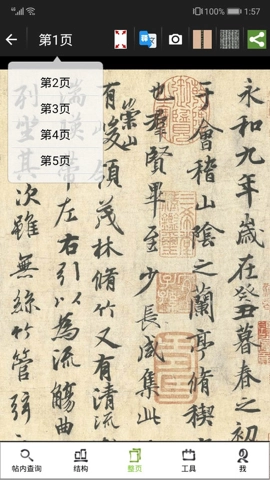 100%
1:57
第1页
第2页
第3页
第4页
第5页
永和九年歲在癸丑暮春之初
于會稽山陰之蘭亭脩稧
也羣賢畢至少長咸集此
有崇山
峻領茂林脩竹又有清流
帶左右引以為流觴曲
列坐其次雖無絲竹管弦
帖内查询
结构
整页
工具
我